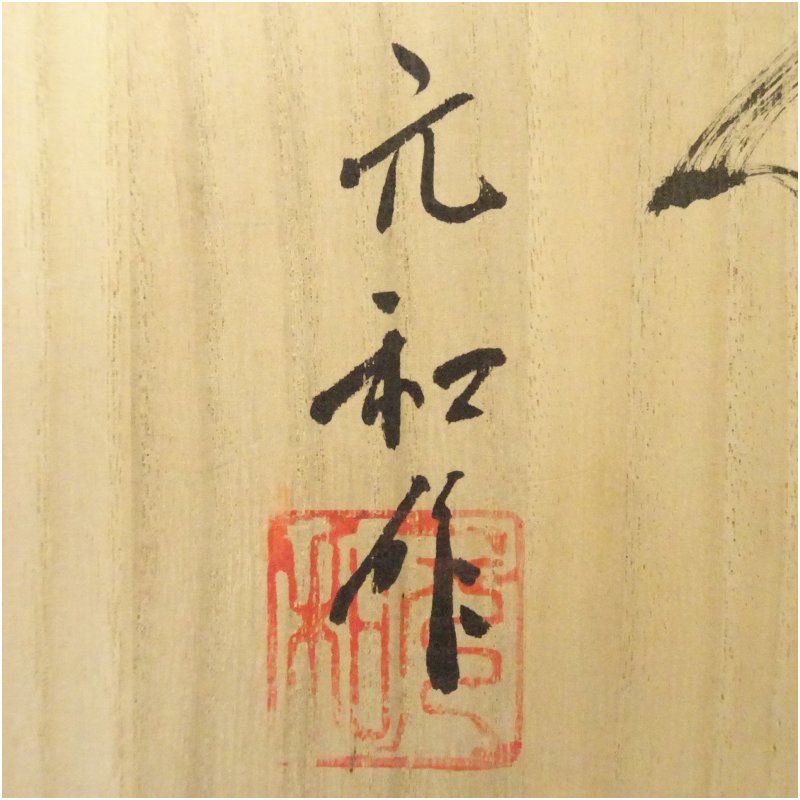 元和作